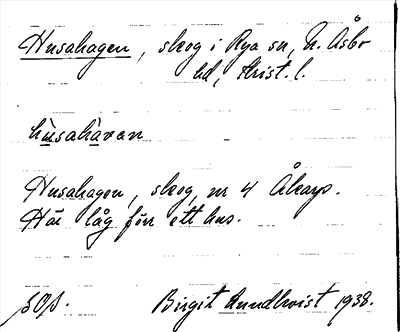 Husahagen, skog i Rya sn, N. Åsbo
hd, Krist. l.
hùsahàvan
Husahagen, skog, nr 4 Åkarp.
Här låg förr ett hus.
Birgit Lundkvist 1938.